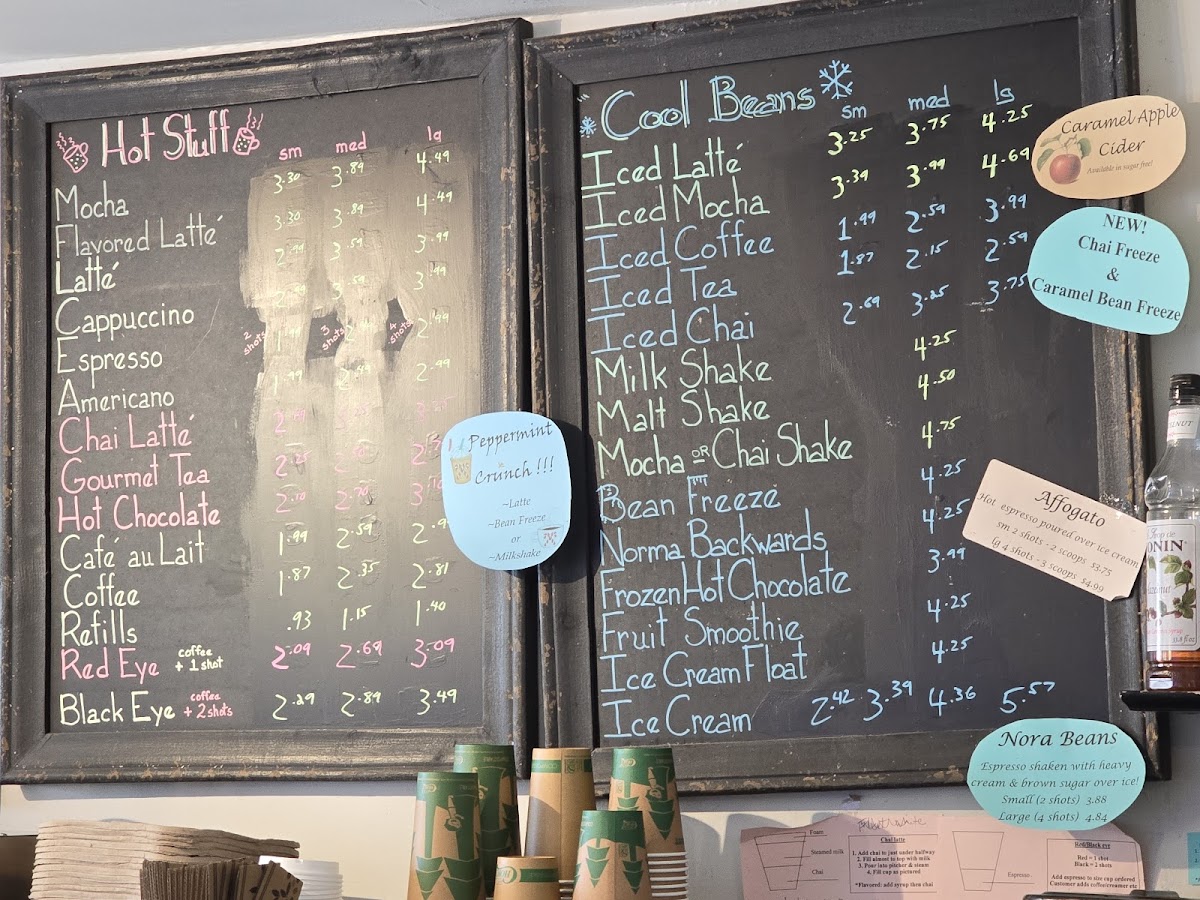 Hot Stuff
sm med lg
Mocha 3.30 3.89 4.49
Flavored Latté 3.30 3.89 4.49
Latté 2.99 3.59 3.99
Cappuccino 3.59 3.99
Espresso 2 shots 1.99 3 shots 4 shots 2.49
Americano 1.99 2.49 2.99
Chai Latté
Gourmet Tea 2.25
Hot Chocolate 2.10 2.70
Café au Lait 1.99 2.59
Coffee 1.87 2.35 2.81
Refills .93 1.15 1.40
Red Eye coffee + 1 shot 2.09 2.69 3.09
Black Eye coffee + 2 shots 2.29 2.89 3.49
Peppermint
Crunch!!!
~Latte
~Bean Freeze
or
~Milkshake
Cool Beans
sm med lg
Iced Latté 3.25 3.75 4.25
Iced Mocha 3.39 3.99 4.69
Iced Coffee 1.99 2.59 3.99
Iced Tea 1.87 2.15 2.59
Iced Chai 2.69 3.25 3.75
Milk Shake 4.25
Malt Shake 4.50
Mocha OR Chai Shake 4.75
Bean Freeze 4.25
Norma Backwards 4.25
Frozen Hot Chocolate 3.99
Fruit Smoothie 4.25
Ice Cream Float 4.25
Ice Cream 2.42 3.39 4.36 5.57
Caramel Apple
Cider
Available in sugar free!
NEW!
Chai Freeze
&
Caramel Bean Freeze
Affogato
Hot espresso poured over ice cream
sm 2 shots - 2 scoops $3.75
lg 4 shots - 3 scoops $4.99
Nora Beans
Espresso shaken with heavy
cream & brown sugar over ice!
Small (2 shots) 3.88
Large (4 shots) 4.84
ONIN
Foam
Steamed milk
Chai
Chai latte
1. Add chai to just under halfway
2. Fill almost to top with milk
3. Pour into pitcher & steam
4. Fill cup as pictured
*Flavored: add syrup then chai
Espresso
Red/Black eye
Red = 1 shot
Black = 2 shots
Add espresso to size cup ordered
Customer adds coffee/creamer etc